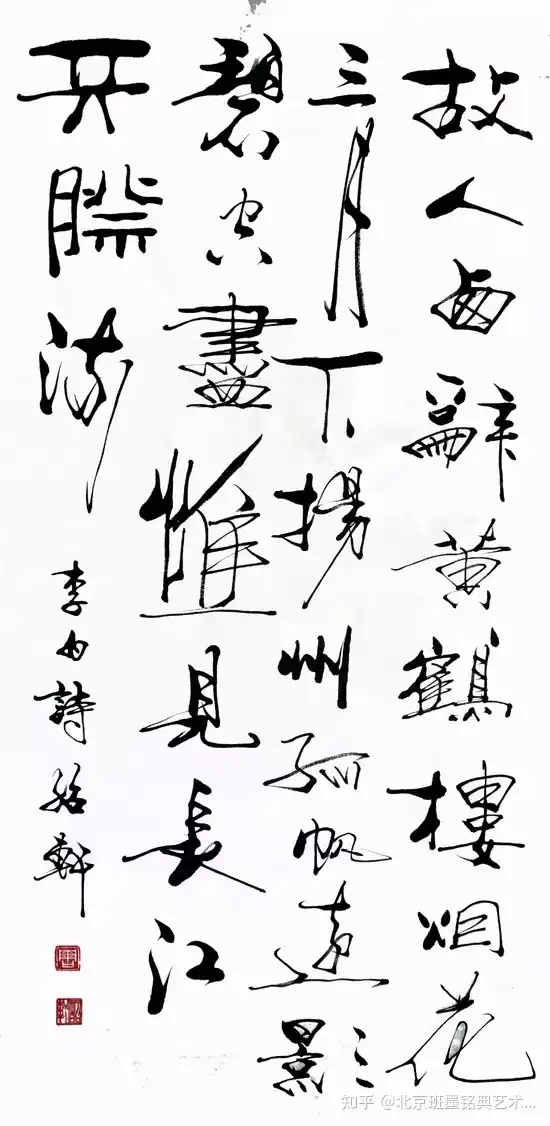 故人西辭黄鶴樓烟花
三月下揚州孤帆遠影
碧空盡惟見長江
天際流
李白詩軒
知乎 @北京班墨铭典艺术...